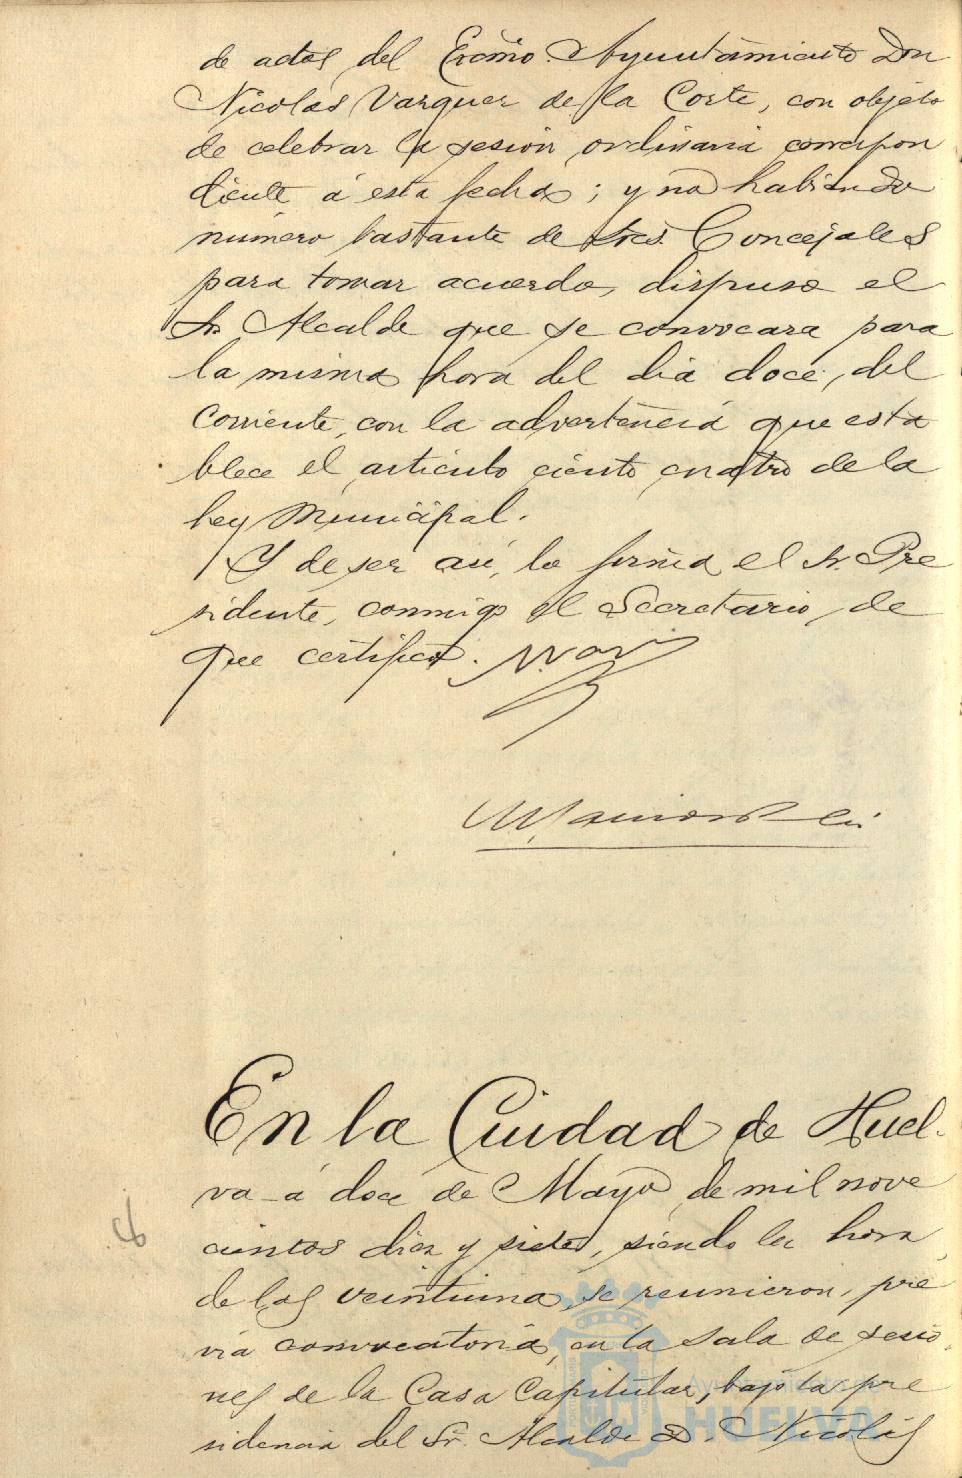 de actos del Excmo. Ayuntamiento Don
Nicolas Vazquez de la Corte, con objeto
de celebrar la sesion ordinaria correspon
diente á esta fecha; y no habiendo
número bastante de Sres. Concejales
para tomar acuerdo, dispuso el
Sr. Alcalde que se convocara para
la misma hora del dia doce, del
corriente, con la advertencia que esta
blece el artículo ciento cuatro de la
Ley Municipal.
Y de ser así, lo firma el Sr. Pre
sidente, conmigo el Secretario, de
que certifico.
En la Ciudad de Huel-
va á doce de Mayo de mil nove
cientos diez y siete, siendo la hora
de las veintiuna, se reunieron, pre
via convocatoria, en la Sala de sesio
nes de la Casa Capitular, bajo la pre
sidencia del Sr. Alcalde D. Nicolás
Ayuntamiento de
HUELVA